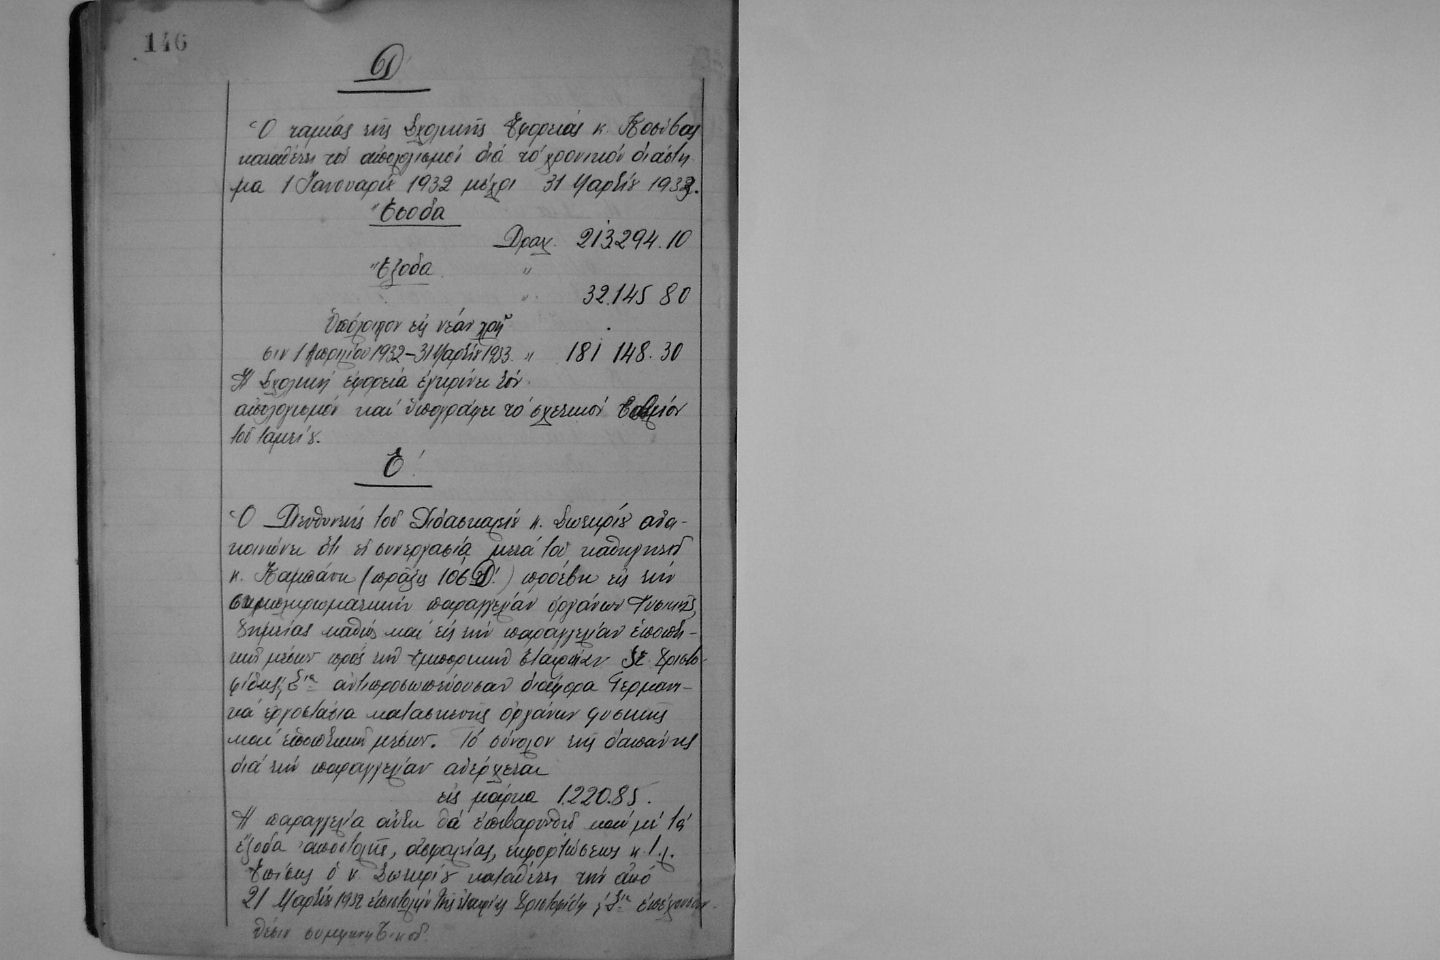 146
Δ'
Ὁ ταμίας τῆς Σχολικῆς Ἐφορείας κ. Κοσύβας
καταθέτει τὸν ἀπολογισμὸν διὰ τὸ χρονικὸν διάστη
μα 1 Ἰανουαρίου 1932 μέχρι 31 Μαρτίου 1932.
Ἔσοδα
Δραχ. 213.294.10
Ἔξοδα "
" 32.145 80
Ὑπόλοιπον εἰς νέαν χρῆ
σιν 1 Ἀπριλίου 1932-31 Μαρτίου 1933. " 181 148.30
Ἡ Σχολικὴ ἐφορεία ἐγκρίνει τὸν
ἀπολογισμὸν καὶ ὑπογράφει τὸ σχετικὸν βιβλίον
τοῦ ταμείου.
Ε'
Ὁ Διευθυντὴς τοῦ Διδασκαλείου κ. Σωτηρίου ἀνα-
κοινώνει ὅτι ἐν συνεργασίᾳ μετὰ τοῦ καθηγητοῦ
κ. Καμπάνη (πρᾶξις 106 Δ'.) προέβη εἰς τὴν
συμπληρωματικὴν παραγγελίαν ὀργάνων Φυσικῆς,
Χημείας καθὼς καὶ εἰς τὴν παραγγελίαν ἐποπτι-
κῶν μέσων πρὸς τὴν ἐμπορικὴν ἑταιρείαν Χριστο-
φίδης & Σια ἀντιπροσωπεύουσαν διάφορα Γερμανι-
κὰ ἐργοστάσια κατασκευῆς ὀργάνων φυσικῆς
καὶ ἐποπτικῶν μέσων. Τὸ σύνολον τῆς δαπάνης
διὰ τὴν παραγγελίαν ἀνέρχεται
εἰς μάρκα 1.220.85.
Ἡ παραγγελία αὕτη θὰ ἐπιβαρυνθῇ καὶ μὲ τὰ
ἔξοδα ἀποστολῆς, ἀσφαλείας, ἐκφορτώσεως κ.λ.
Ἐπίσης ὁ κ. Σωτηρίου καταθέτει τὴν ἀπὸ
21 Μαρτίου 1932 ἐπιστολὴν τῆς ἑταιρείας Χριστοφίδη & Σια